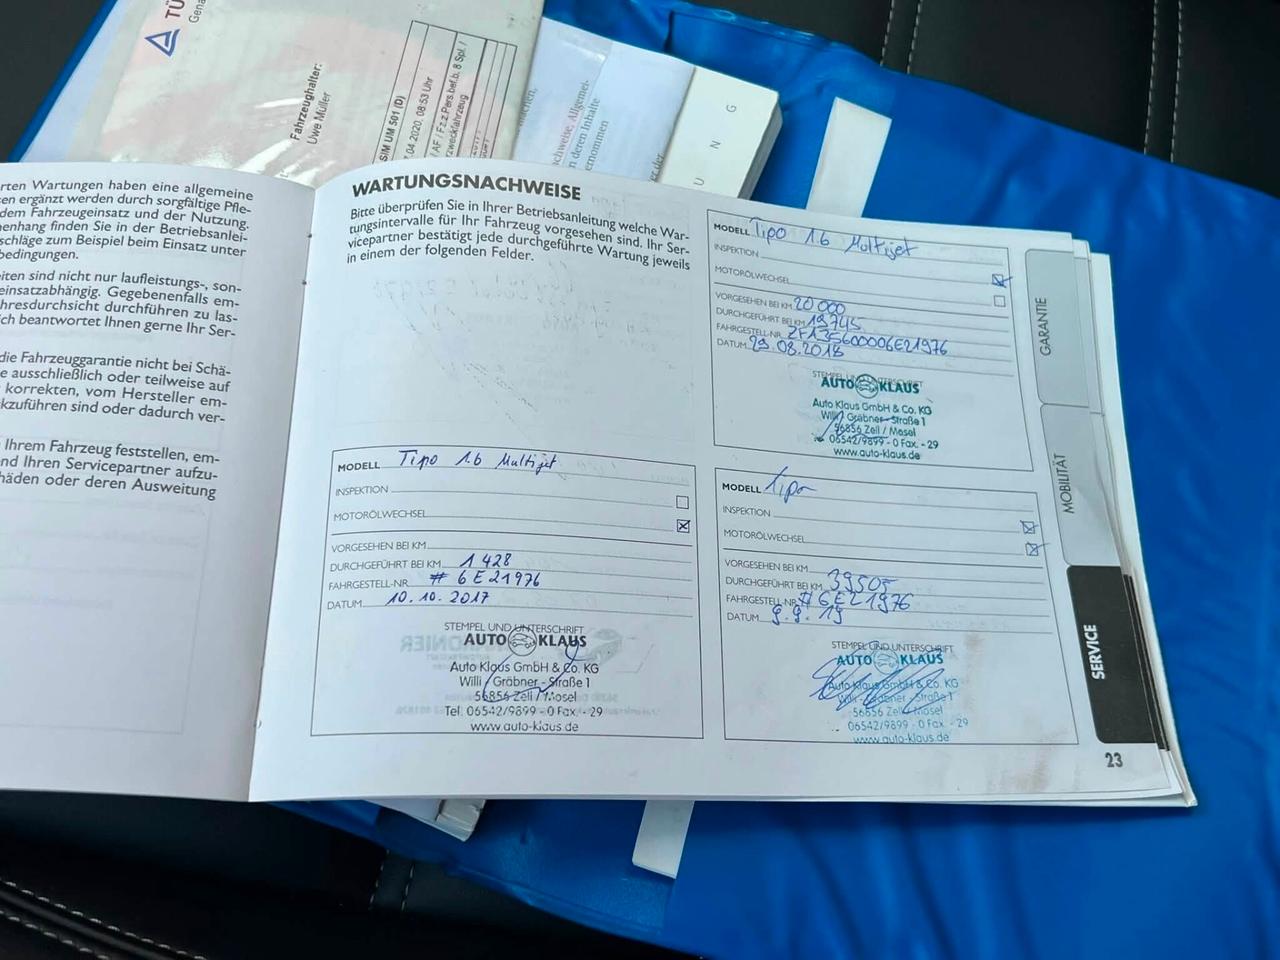 TÜ
Fahrzeughalter:
Uwe Müller
SIM UM 501 (D)
04 2020, 08:53 Uhr
AF / Fz.z.Pers.bef.b. 8 Spl./
zweckfahrzeug
machen,
chweise, Allgemei-
n deren Inhalte
ernommen
U N G
rten Wartungen haben eine allgemeine
en ergänzt werden durch sorgfältige Pfle-
dem Fahrzeugeinsatz und der Nutzung.
nenhang finden Sie in der Betriebsanlei-
schläge zum Beispiel beim Einsatz unter
bedingungen.
eiten sind nicht nur laufleistungs-, son-
einsatzabhängig. Gegebenenfalls em-
hresdurchsicht durchführen zu las-
ch beantwortet Ihnen gerne Ihr Ser-
die Fahrzeuggarantie nicht bei Schä-
e ausschließlich oder teilweise auf
korrekten, vom Hersteller em-
kzuführen sind oder dadurch ver-
Ihrem Fahrzeug feststellen, em-
nd Ihren Servicepartner aufzu-
häden oder deren Ausweitung
WARTUNGSNACHWEISE
Bitte überprüfen Sie in Ihrer Betriebsanleitung welche War-
tungsintervalle für Ihr Fahrzeug vorgesehen sind. Ihr Ser-
vicepartner bestätigt jede durchgeführte Wartung jeweils
in einem der folgenden Felder.
MODELL Tipo 1.6 Multijet
INSPEKTION
MOTORÖLWECHSEL
VORGESEHEN BEI KM 20 000
DURCHGEFÜHRT BEI KM 19745
FAHRGESTELL-NR. ZFA35600006E21976
DATUM 29.08.2018
STEMPEL UND UNTERSCHRIFT
AUTO KLAUS
Auto Klaus GmbH & Co. KG
Willi Gräbner-Straße 1
56856 Zell / Mosel
06542/9899 - 0 Fax. - 29
www.auto-klaus.de
MODELL Tipo 1.6 Multijet
INSPEKTION
MOTORÖLWECHSEL
VORGESEHEN BEI KM
DURCHGEFÜHRT BEI KM 1 428
FAHRGESTELL-NR. # 6E21976
DATUM 10.10.2017
STEMPEL UND UNTERSCHRIFT
AUTO KLAUS
Auto Klaus GmbH & Co. KG
Willi Gräbner - Straße 1
56856 Zell / Mosel
Tel. 06542/9899 - 0 Fax. - 29
www.auto-klaus.de
MODELL Tipo
INSPEKTION
MOTORÖLWECHSEL
VORGESEHEN BEI KM
DURCHGEFÜHRT BEI KM 39505
FAHRGESTELL-NR. # 6E21976
DATUM 9.9.19
STEMPEL UND UNTERSCHRIFT
AUTO KLAUS
Auto Klaus GmbH & Co. KG
Willi - Gräbner - Straße 1
56856 Zell / Mosel
06542/9899 - 0 Fax. - 29
www.auto-klaus.de
GARANTIE
MOBILITÄT
SERVICE
23